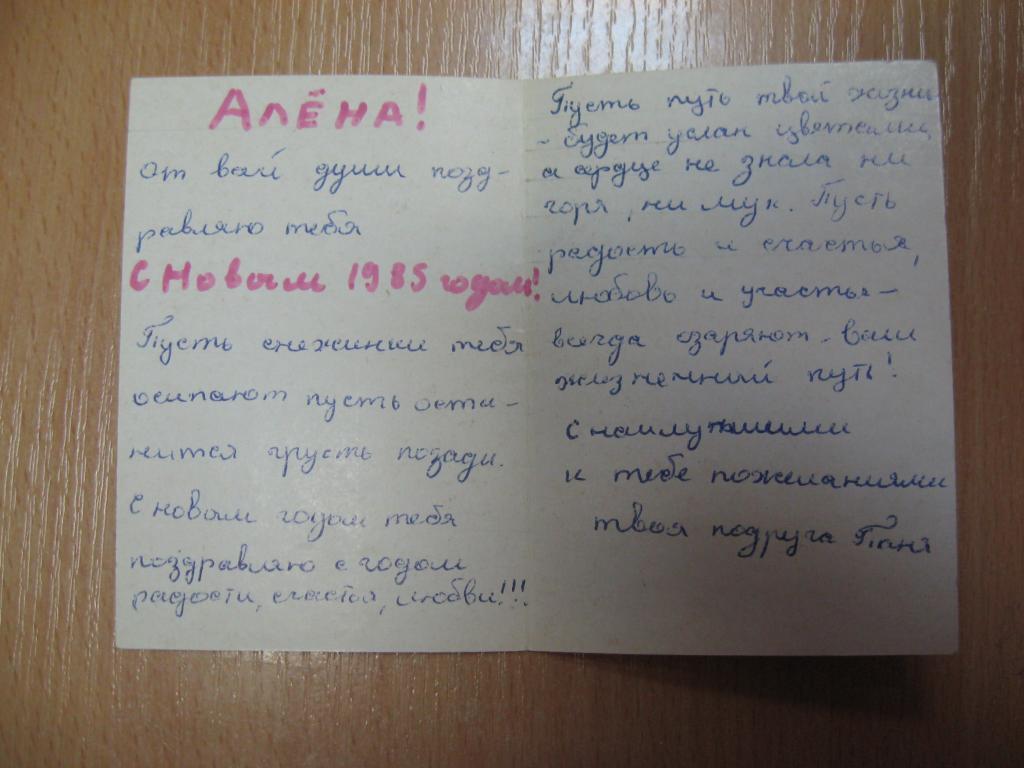 АЛЁНА!
от вой души позд-
равляю тебя
С Новым 1985 годом!
Пусть снежинки тебя
осипают пусть оста-
нится грусть позади.
С новым годом тебя
поздравляю с годом
радости, счастья, любви!!!
Пусть путь твой жизни
- будет услан цветками,
а сердце не знала ни
горя, ни мук. Пусть
радость и счастья,
любовь и участья -
всегда озаряют ваш
жизненний путь!
С наилутшими
к тебе пожеланиями
твоя подруга Таня